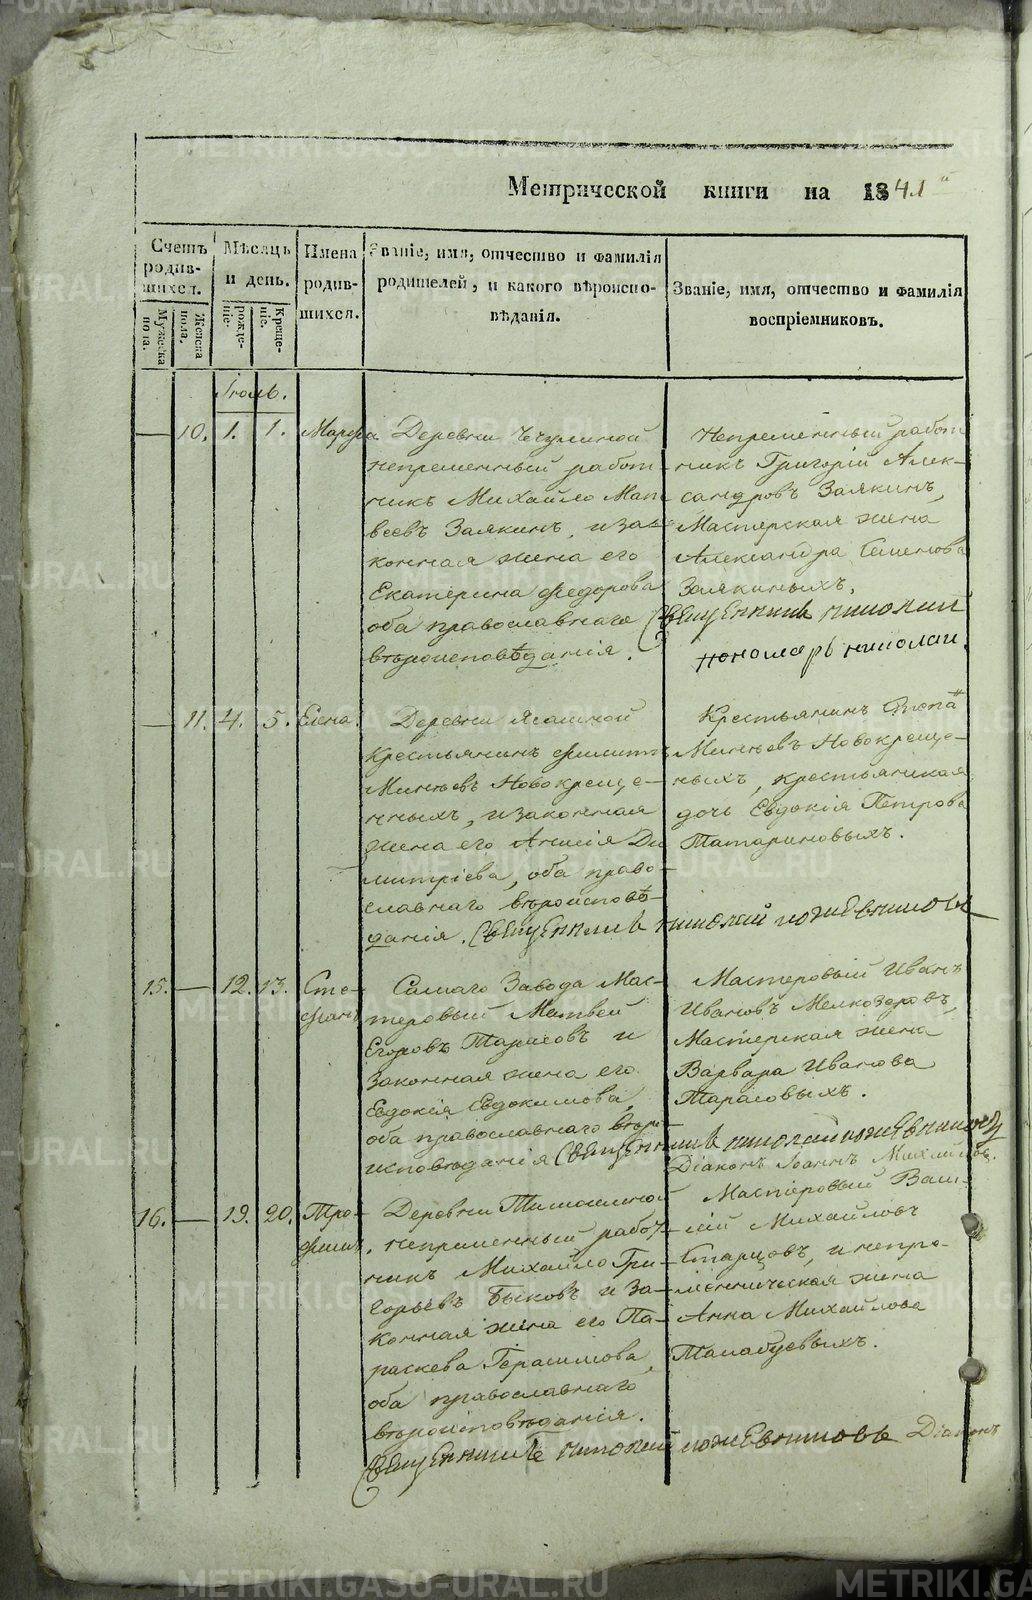 Метрической книги на 1841й
Счетъ родив-шихся.
Мужеска пола.
Женска пола.
Мѣсяцъ и день.
рожде-ніе.
Креще-ніе.
Имена родив-шихся.
Званіе, имя, отчество и фамилія
родителей, и какого вѣроиспо-
вѣданія.
Званіе, имя, отчество и фамилія
воспріемниковъ.
Іюль.
— 10. 1. 1. Марѳа
Деревни Чечулиной
непременный работ-
никъ Михайло Мат
веевъ Залкинъ, и за-
конная жена его
Екатерина Федорова
оба православнаго
вѣроисповѣданія.
Непременный работ
никъ Григорій Алек-
сандровъ Залкинъ,
Мастерская жена
Александра Семенова
Залкиныхъ.
Священникъ Николай
пономарь Николай.
— 11. 4. 5. Елена.
Деревни Ясашной
Крестьянинъ Филиппъ
Минѣевъ Новокреще-
нныхъ, и законная
жена его Анисія Ди
митріева, оба право-
славнаго вѣроисповѣ-
данія.
Крестьянинъ
Минѣевъ Новокреще-
ныхъ, крестьянская
дочь Евдокія Петрова
Татариновыхъ.
Священникъ Николай
15. — 12. 13. Сте-
фанъ
Самаго Завода Мас-
теровый Матвей
Егоровъ Тарасовъ и
Законная жена его
Евдокія Евдокимова,
оба православнаго вѣро-
исповѣданія
Мастеровый Иванъ
Ивановъ Мелкозеровъ,
Мастерская жена
Варвара Иванова
Тарасовыхъ.
Священникъ Николай
Діаконъ Іоаннъ Михайловъ.
16. — 19. 20. Тро-
фимъ.
Деревни
непременный работ-
никъ Михайло Гри-
горьевъ Быковъ и За-
конная жена его Па-
раскева Герасимова,
оба православнаго
вѣроисповѣданія.
Мастеровый Васи-
лій Михайловъ
Старцовъ, и непре-
менническая жена
Анна Михайлова
Священникъ Николай
Діаконъ
METRIKI.GASO-URAL.RU